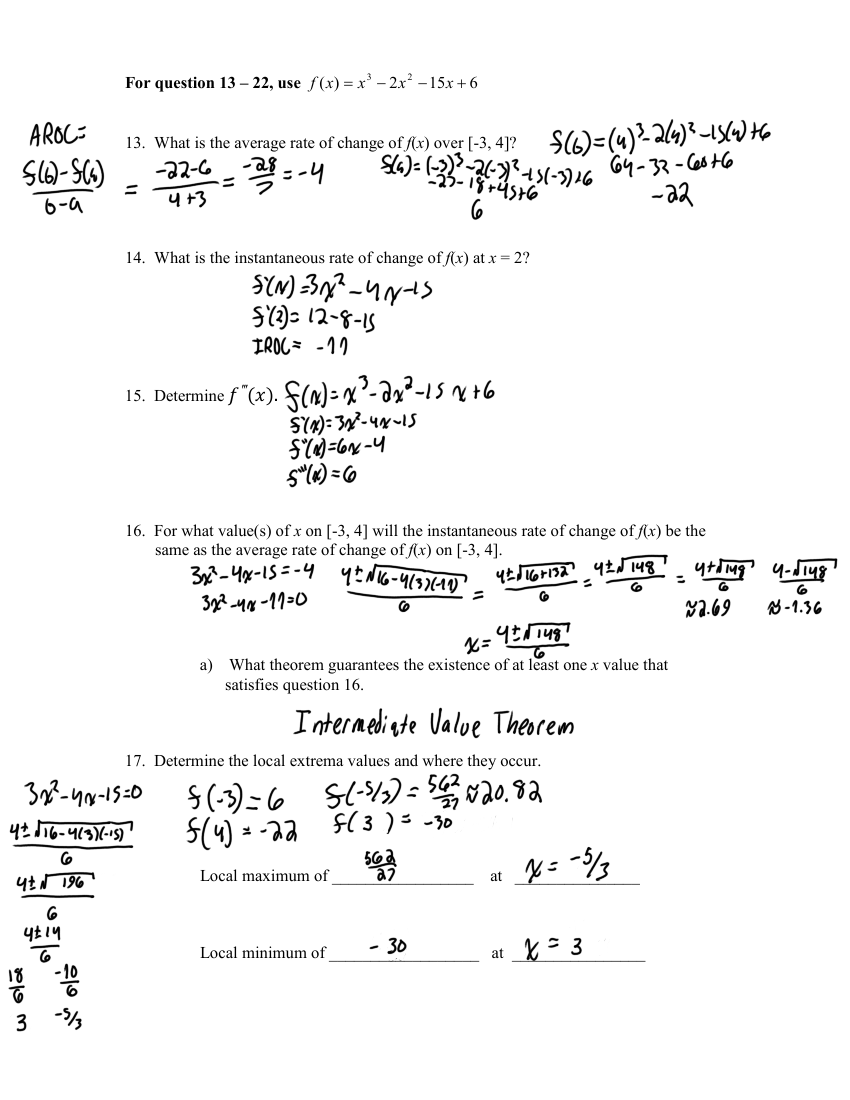 For question 13 – 22, use f(x) = x³ − 2x² − 15x + 6
AROC=
13. What is the average rate of change of f(x) over [-3, 4]?
f(b)-f(a)/b-a = -22-6/4+3 = -28/7 = -4
f(a)=(-3)³-2(-3)²-15(-3)+6
-27-18+45+6
6
f(b)=(4)³-2(4)²-15(4)+6
64-32-60+6
-22
14. What is the instantaneous rate of change of f(x) at x = 2?
f'(x)=3x²-4x-15
f'(2)=12-8-15
IROC= -11
15. Determine f'''(x). f(x)=x³-2x²-15x+6
f'(x)=3x²-4x-15
f''(x)=6x-4
f'''(x)=6
16. For what value(s) of x on [-3, 4] will the instantaneous rate of change of f(x) be the
same as the average rate of change of f(x) on [-3, 4].
3x²-4x-15=-4
3x²-4x-11=0
4±√16-4(3)(-11)/6 = 4±√16+132/6 = 4±√148/6 = 4+√148/6 4-√148/6
≈2.69 ≈-1.36
x= 4±√148/6
a) What theorem guarantees the existence of at least one x value that
satisfies question 16.
Intermediate Value Theorem
17. Determine the local extrema values and where they occur.
3x²-4x-15=0
4±√16-4(3)(-15)/6
4±√196/6
4±14/6
18/6 -10/6
3 -5/3
f(-3)=6 f(-5/3)= 562/27 ≈20.82
f(4)=-22 f(3)= -30
Local maximum of 562/27 at x= -5/3
Local minimum of -30 at x = 3